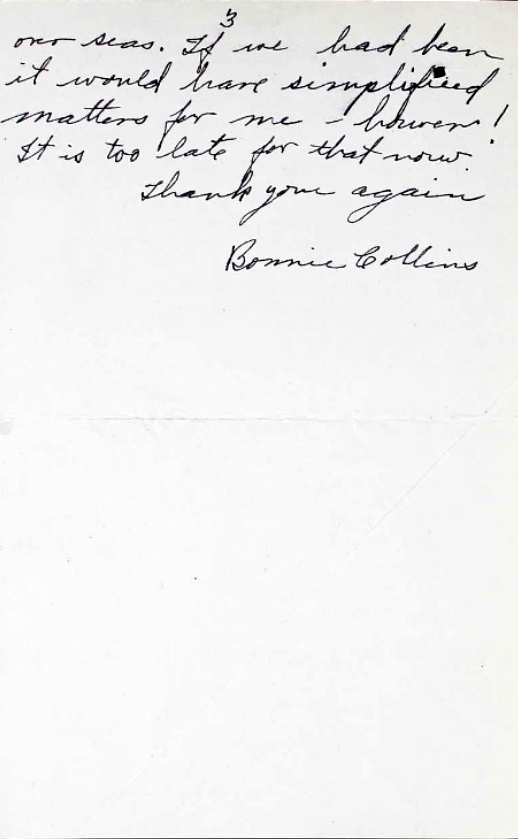 3
over seas. If we had been
it would have simplified
matters for me - however!
It is too late for that now.
Thank you again
Bonnie Collins